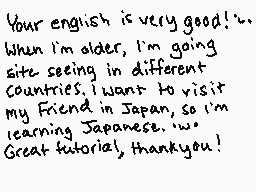 Your english is very good! :).
When I'm older, I'm going
site seeing in different
countries. I want to visit
my Friend in Japan, so I'm
learning Japanese. 'w'
Great tutorial, thankyou!